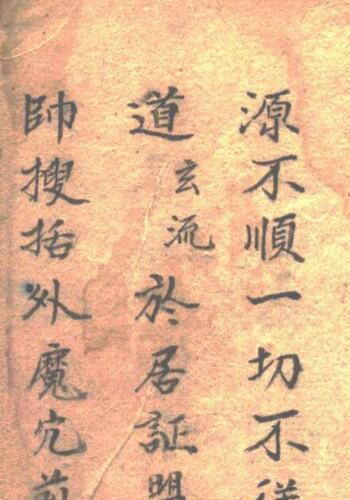 源不順一切不
道玄流於居証盟
帥搜括外魔穴前